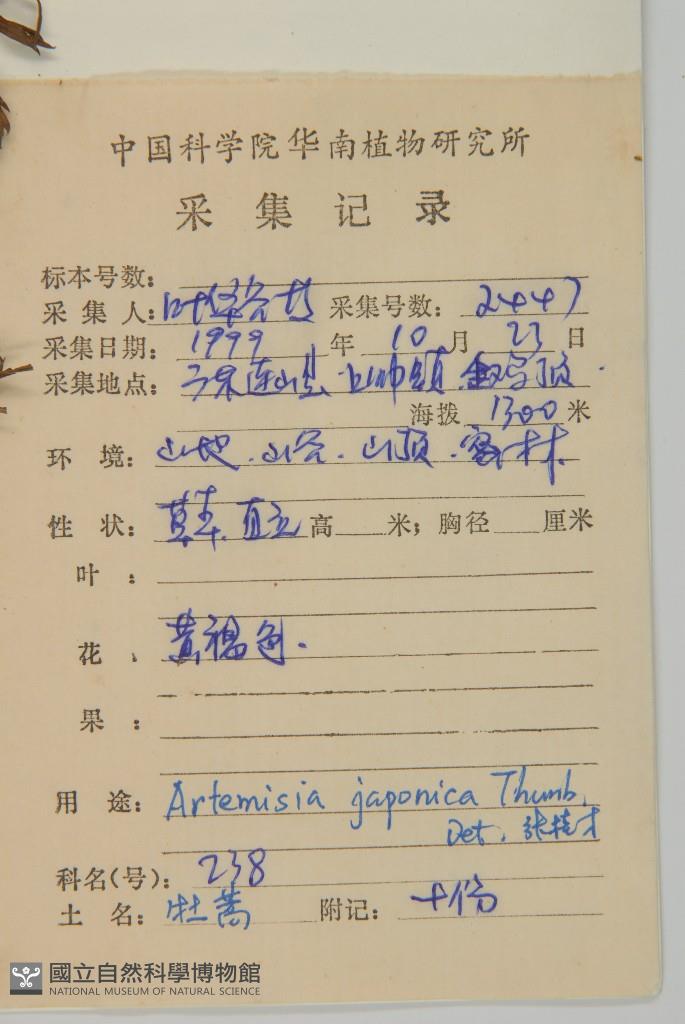 中国科学院华南植物研究所
采集记录
标本号数：
采集人：叶华谷 采集号数：2447
采集日期：1999年10月23日
采集地点：广东连山县上帅镇
海拨1300米
环境：山地.山谷.山顶.密林.
性状：草本 直立高 米；胸径 厘米
叶：
花：黄褐色.
果：
用途：Artemisia japonica Thunb.
Det. 张桂才
科名(号)：238
土名：牡蒿 附记：十份
國立自然科學博物館
NATIONAL MUSEUM OF NATURAL SCIENCE